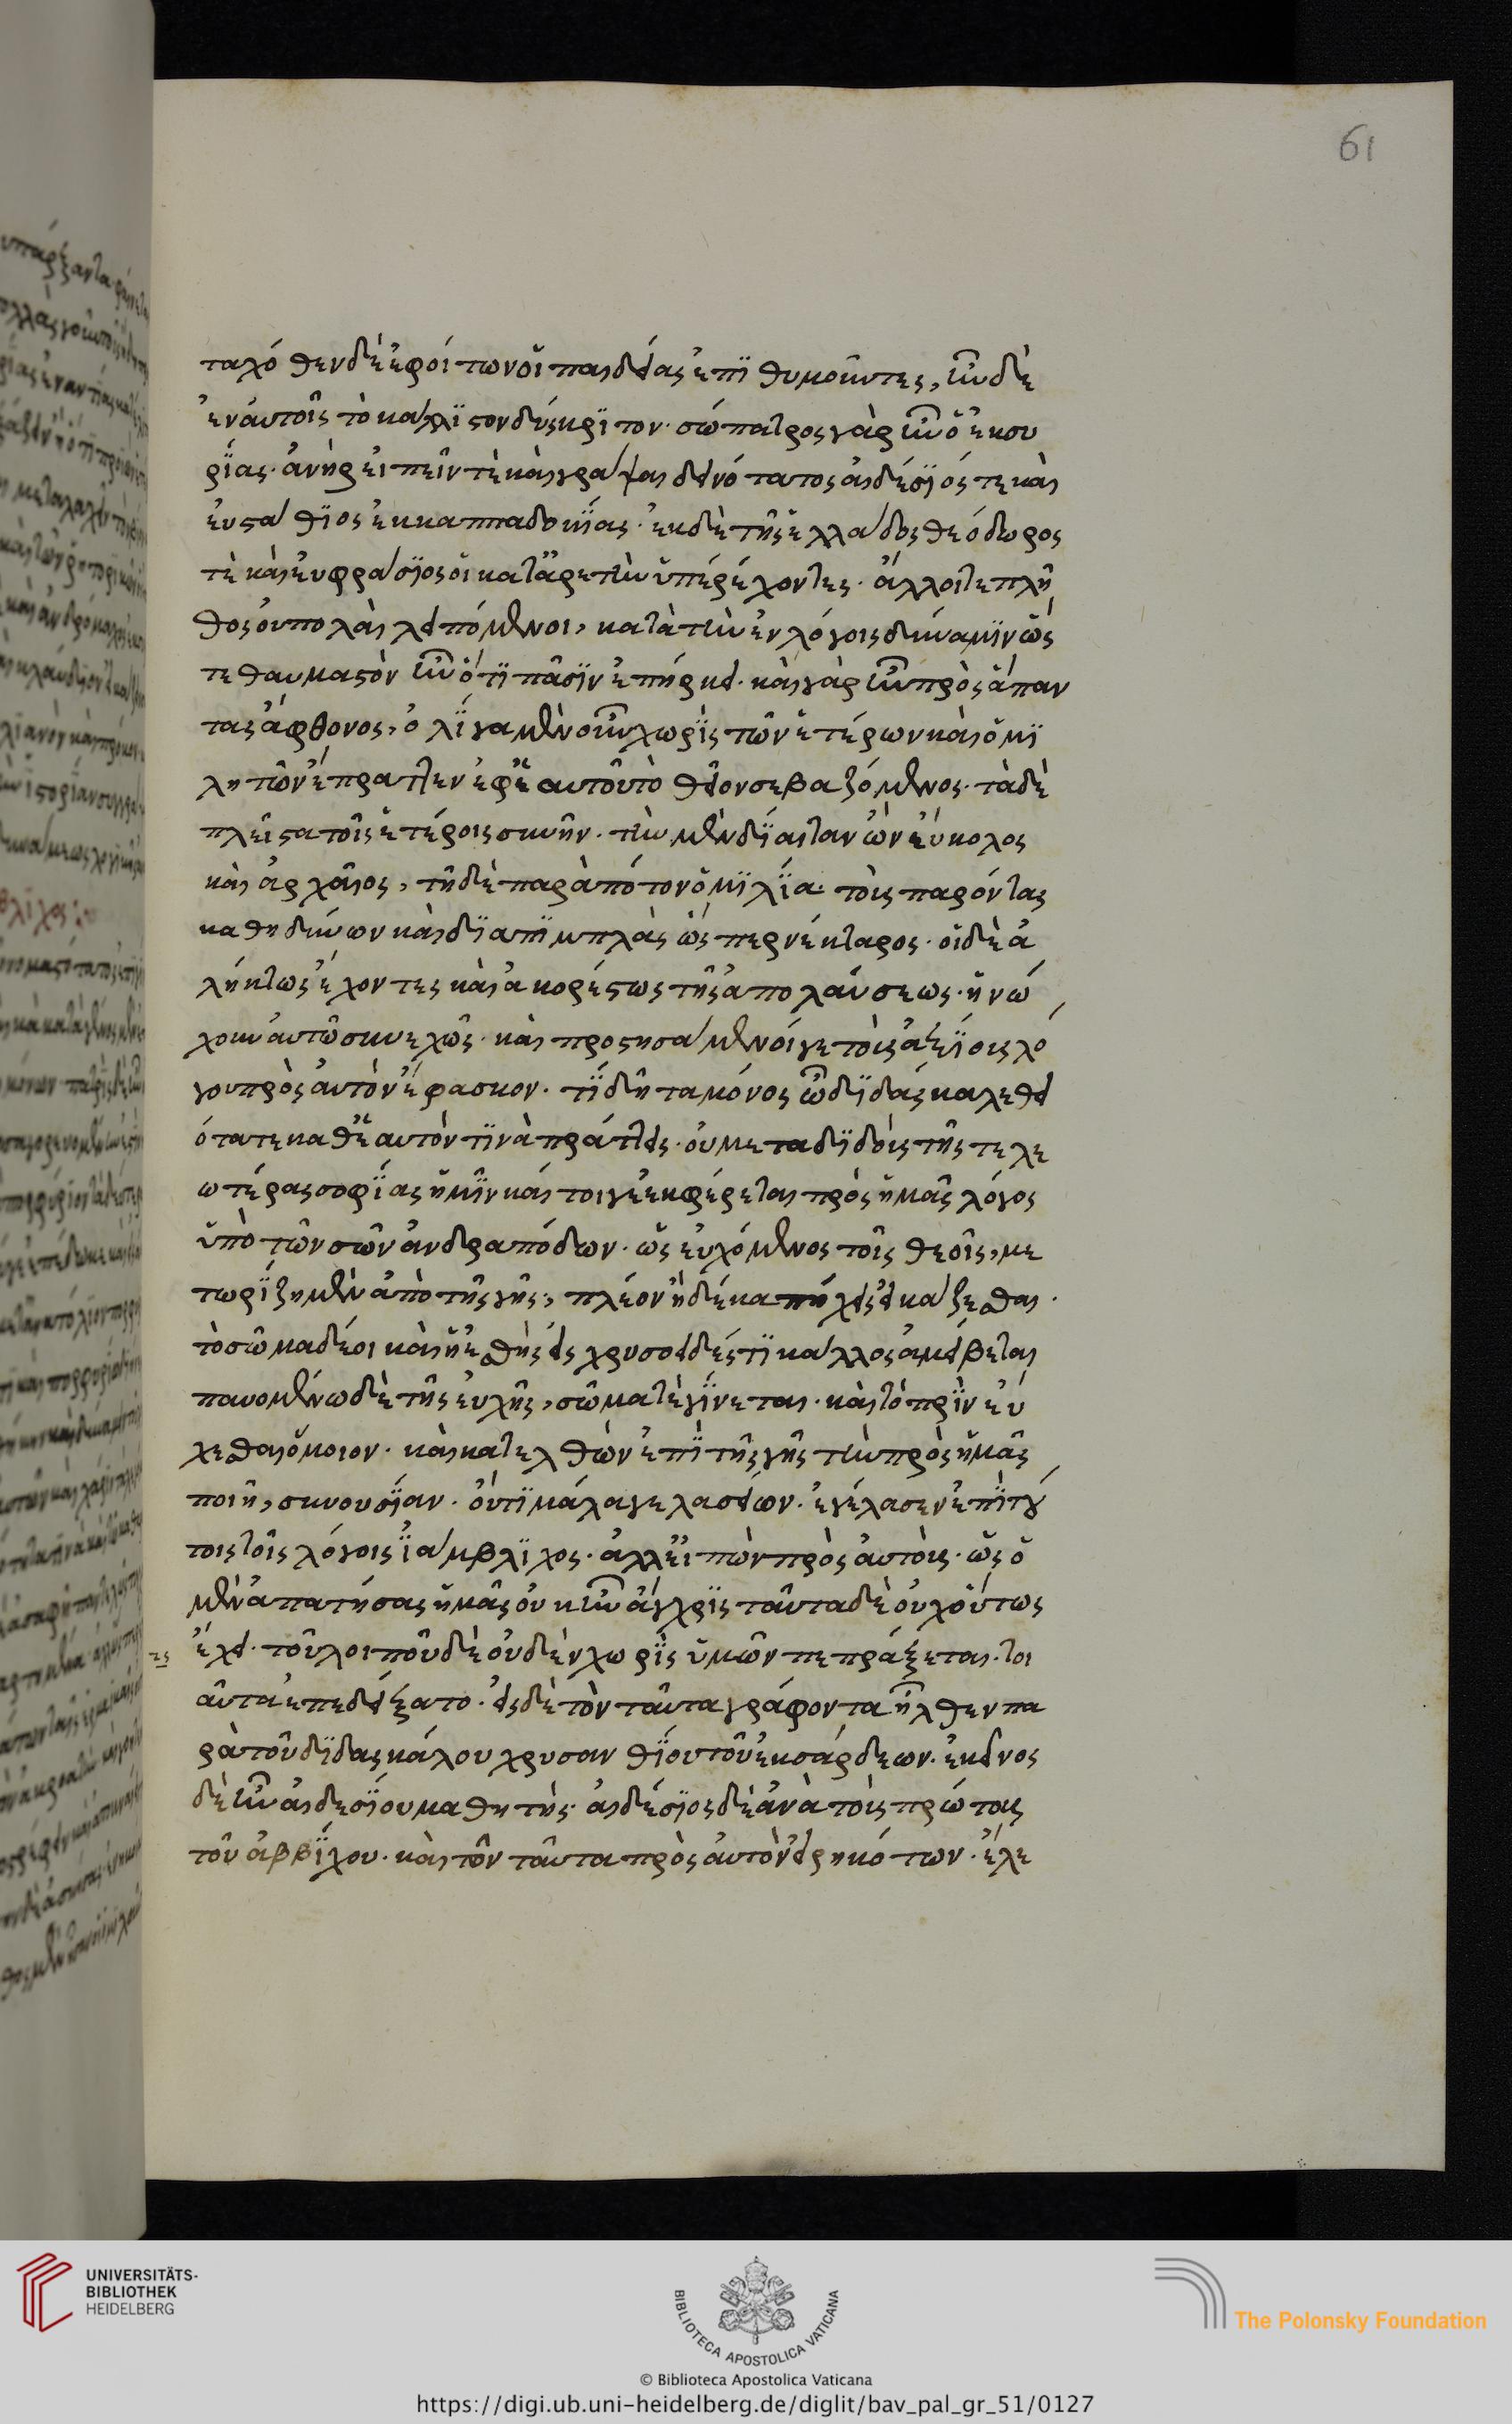 61
ταχόθεν δὲ ἐφοίτων οἱ παιδείας ἐπιθυμοῦντες, ἦν δὲ
ἐν αὐτοῖς τὸ κάλλιστον δύσκριτον· σώπατρος γὰρ ἦν ὁ ἐκ συ
ρίας· ἀνὴρ εἰπεῖν τὲ καὶ γράψαι δεινότατος αἰδέσιός τε καὶ
εὐστάθιος ἐκ καππαδοκίας· ἐκ δὲ τῆς ἑλλάδος θεόδωρος
τὲ καὶ εὐφράσιος οἱ κατ' ἀρετὴν ὑπερέχοντες· ἄλλοι τε πλῆ
θος οὐ πολλαὶ λειπόμενοι, κατὰ τὴν ἐν λόγοις δύναμιν ὥς
τε θαυμαστὸν ἦν ὅτι πᾶσιν ἐπήρκει· καὶ γὰρ ἦν πρὸς ἅπαν
τας ἄφθονος, ὀλίγα μὲν οὖν χωρὶς τῶν ἑτέρων καὶ ὁμι
λητῶν ἔπραττεν ἐφ' ἑαυτοῦ τὸ θεῖον σεβαζόμενος· τὰ δὲ
πλεῖστα τοῖς ἑτέροις συνῆν· τὴν μὲν δίαιταν ὢν εὔκολος
καὶ ἀρχαῖος, τῇ δὲ παρὰ πότον ὁμιλίᾳ τοὺς παρόντας
καθηδύνων καὶ διαπιμπλὰς ὥσπερ νέκταρος· οἱ δὲ ἀ
λήκτως ἔχοντες καὶ ἀκορέστως τῆς ἀπολαύσεως· ἠνώ
χουν αὐτῶ συνεχῶς· καὶ προστησάμενοί γε τοὺς ἀξίους λό
γου πρὸς αὐτὸν ἔφασκον· τί δῆτα μόνος ὦ διδάσκαλε θει
ότατε καθ' ἑαυτὸν τινὰ πράττεις· οὐ μεταδιδοὺς τῆς τελε
ωτέρας σοφίας ἡμῖν καί τοιγε ἐκφέρεται πρὸς ἡμᾶς λόγος
ὑπὸ τῶν σῶν ἀνδραπόδων· ὡς εὐχόμενος τοῖς θεοῖς, με
τωρίζῃ μὲν ἀπὸ τῆς γῆς, πλέον ἢ δέκα πήχεις εἰκάζεσθαι·
τὸ σῶμα δέ οι καὶ ἡ ἐσθὴς εἰς χρυσοειδές τι κάλλος ἀμείβεται
παυομένω δὲ τῆς εὐχῆς, σῶμα τὲ γίνεται· καὶ τὸ πρὶν εὔ
χεσθαι ὅμοιον· καὶ κατελθὼν ἐπὶ τῆς γῆς τὴν πρὸς ἡμᾶς
ποιῆ, συνουσίαν· οὔτι μάλα γελασείων· ἐγέλασεν ἐπὶ τού
τοις τοῖς λόγοις ἰάμβλιχος· ἀλλ' εἰπὼν πρὸς αὐτοὺς· ὡς ὁ
μὲν ἀπατήσας ἡμᾶς οὐκ ἦν ἄγχρις ταῦτα δὲ οὐχ οὕτως
ες ἔχει· τοῦ λοιποῦ δὲ οὐδὲν χωρὶς ὑμῶν πεπράξεται· τοι
αῦτα ἐπεδείξατο· εἰς δὲ τὸν ταῦτα γράφοντα ἦλθεν πα
ρὰ τοῦ διδασκάλου χρυσανθίου τοῦ ἐκ σάρδεων· ἐκεῖνος
δὲ ἦν αἰδεσίου μαθητὴς· αἰδέσιος δὲ ἀνὰ τοὺς πρώτους
τοῦ ἀββίχου· καὶ τῶν ταῦτα πρὸς αὐτὸν εἰρηκότων· ἔλε
UNIVERSITÄTS-
BIBLIOTHEK
HEIDELBERG
BIBLIOTECA APOSTOLICA VATICANA
The Polonsky Foundation
© Biblioteca Apostolica Vaticana
https://digi.ub.uni-heidelberg.de/diglit/bav_pal_gr_51/0127